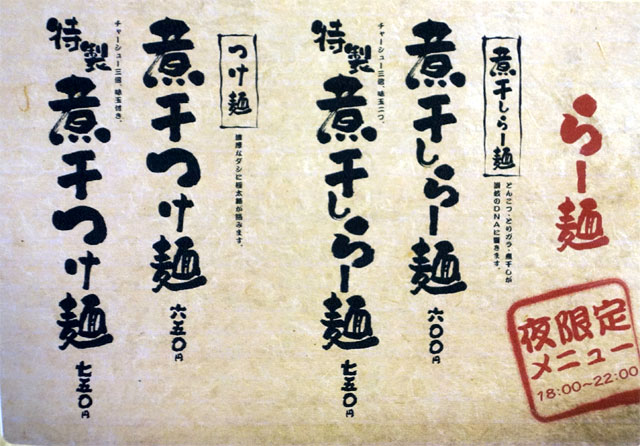 らー麺
夜限定
メニュー
18:00~22:00
煮干しらー麺
とんこつ・とりガラ・煮干しが
讃岐のDNAに響きます。
煮干しらー麺
六〇〇円
特製
煮干しらー麺
七五〇円
チャーシュー三枚、味玉二つ。
つけ麺
濃厚なダシに極太麺が絡みます。
煮干つけ麺
六五〇円
特製
煮干つけ麺
七五〇円
チャーシュー三枚、味玉付き。